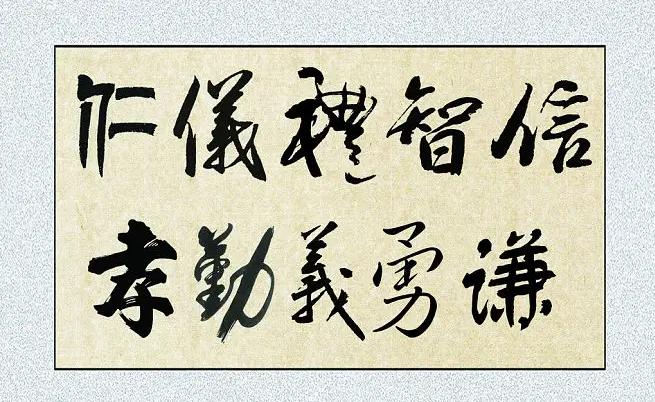 仁儀禮智信
孝勤義勇謙